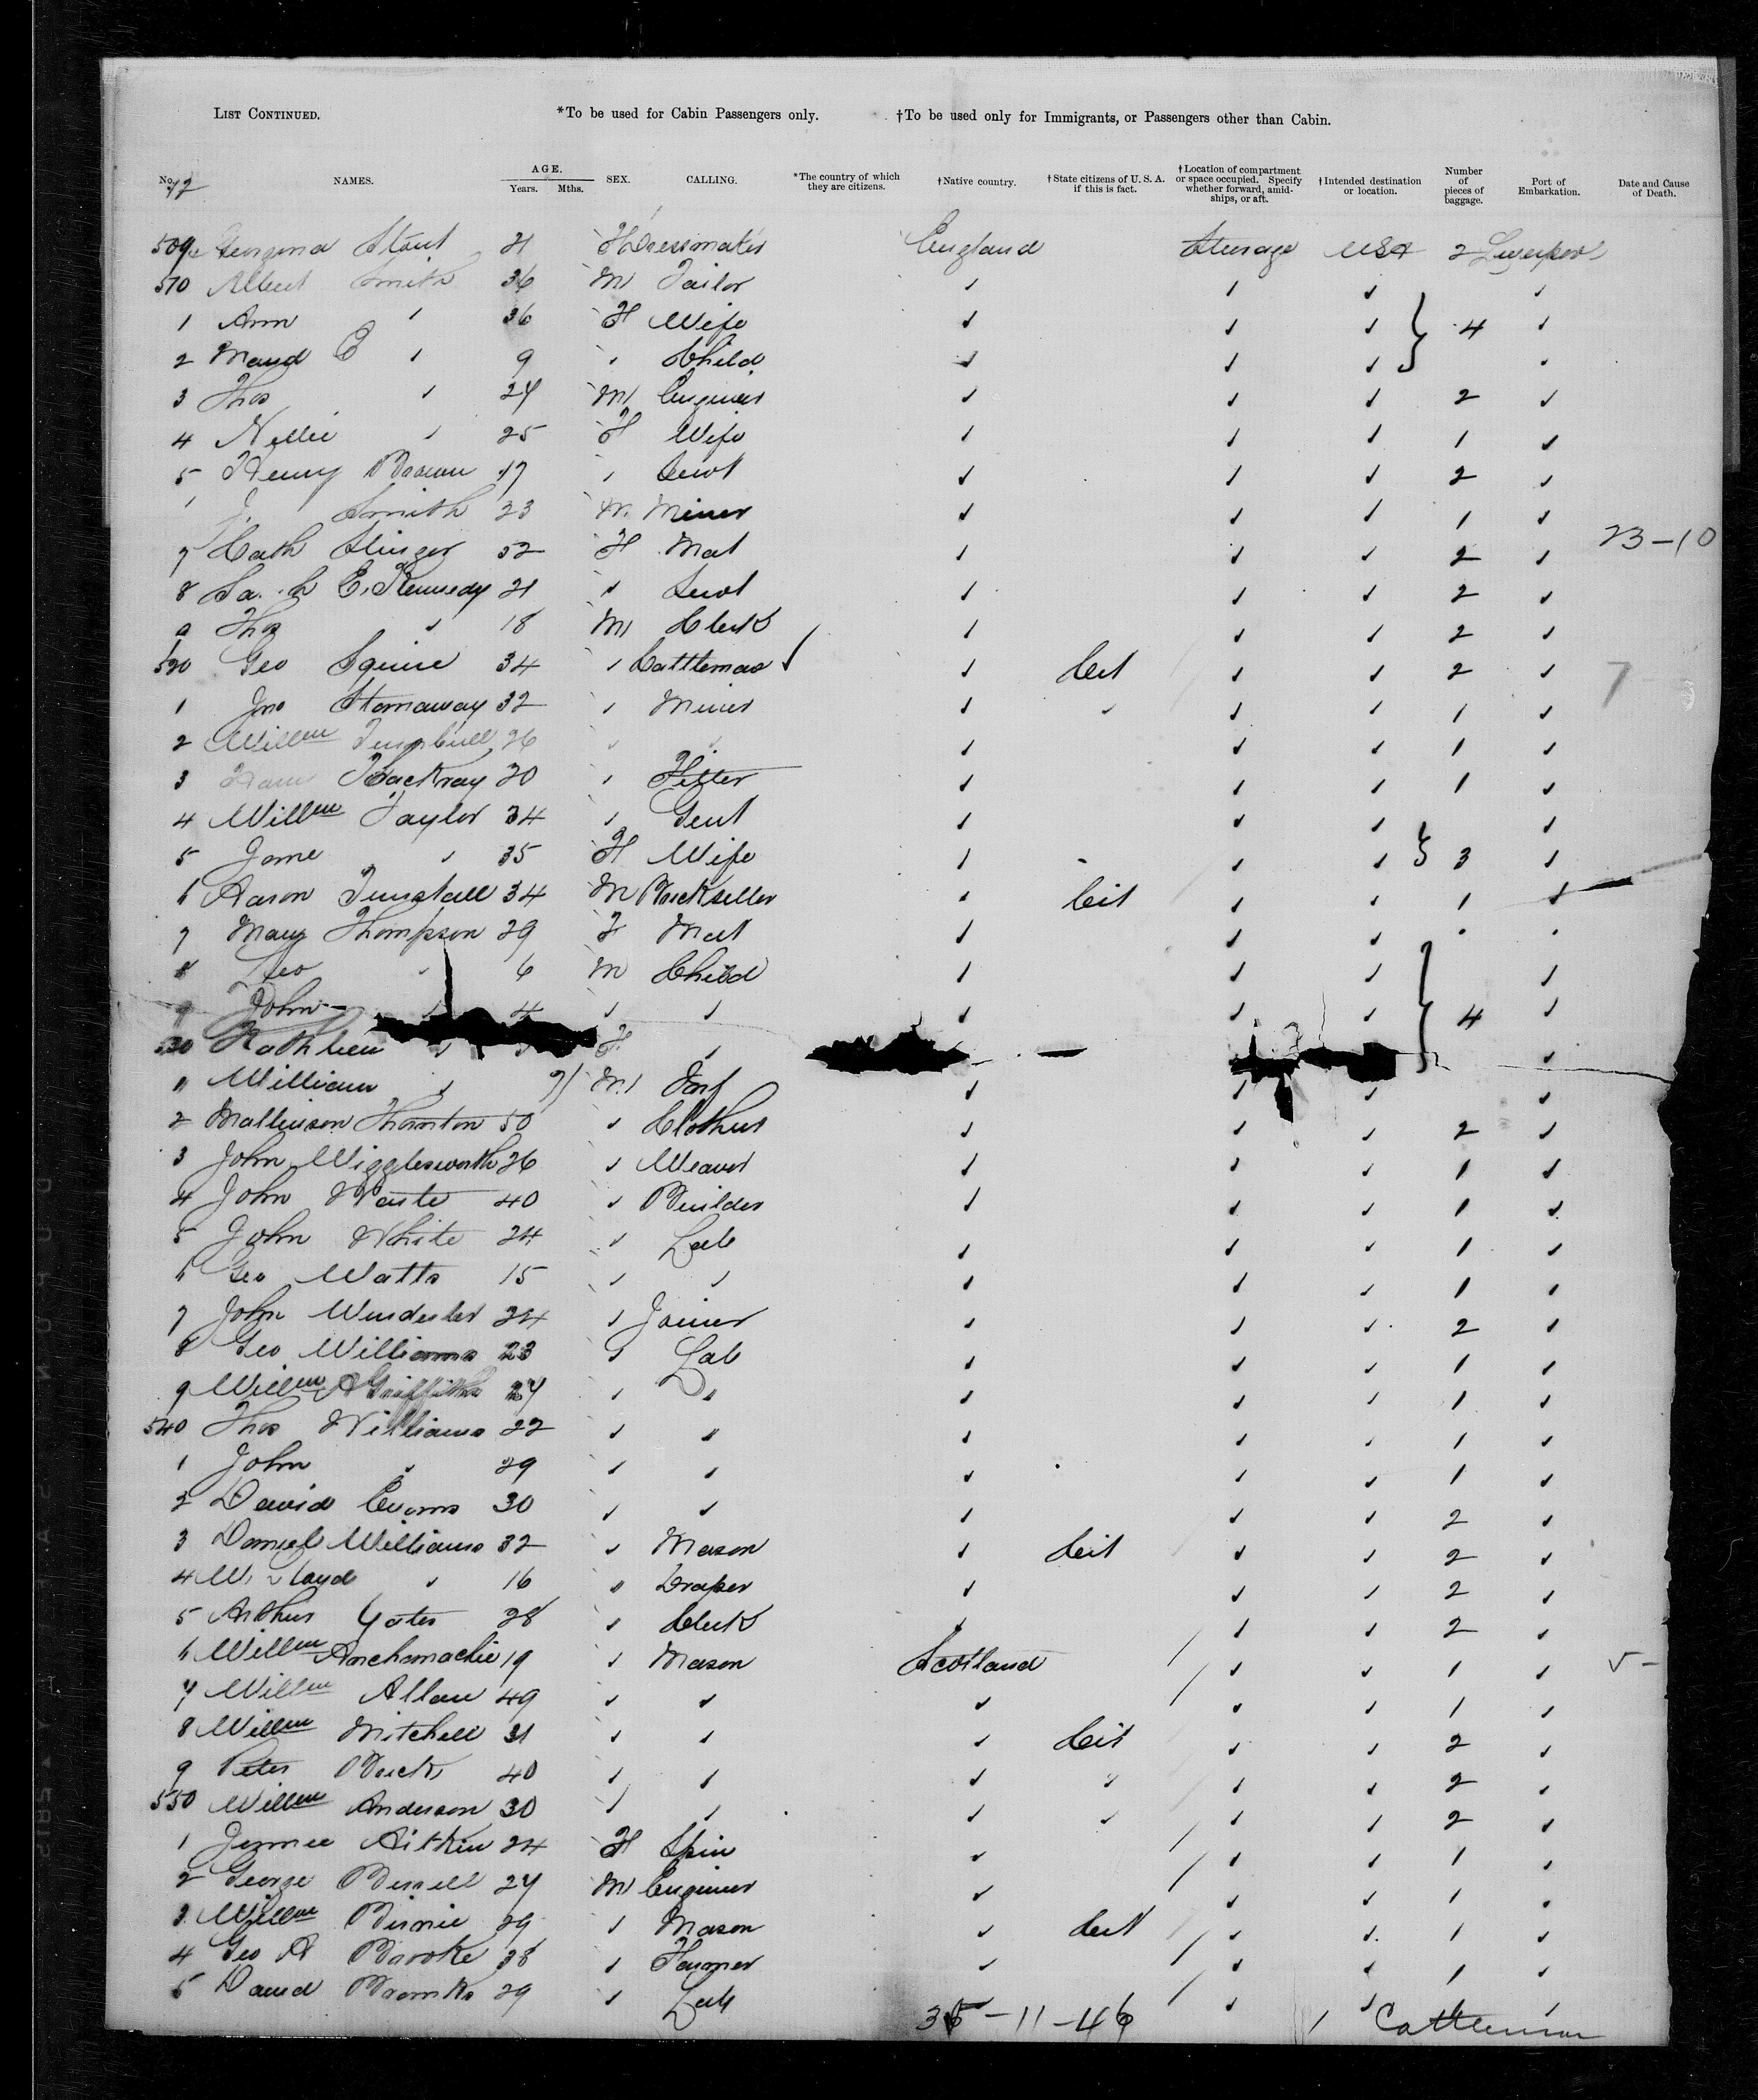 LIST CONTINUED. *To be used for Cabin Passengers only. †To be used only for Immigrants, or Passengers other than Cabin.
No. NAMES. AGE. Years. Mths. SEX. CALLING. *The country of which they are citizens. †Native country. †State citizens of U. S. A. if this is fact. †Location of compartment or space occupied. Specify whether forward, amidships, or aft. †Intended destination or location. Number of pieces of baggage. Port of Embarkation. Date and Cause of Death.
509 Georgina Stout 21 F Dressmaker England Steerage USA 2 Liverpool
510 Albert Smith 36 M Tailor ✓ ✓ ✓ ✓
1 Ann ✓ 36 F Wife ✓ ✓ ✓ } 4 ✓
2 Maud E ✓ 9 ✓ Child ✓ ✓ ✓ ✓
3 Thos ✓ 24 M Engineer ✓ ✓ ✓ 2 ✓
4 Nellie ✓ 25 F Wife ✓ ✓ ✓ 1 ✓
5 Henry Brown 17 ✓ Servt ✓ ✓ ✓ 2 ✓
J. Smith 23 M Miner ✓ ✓ ✓ 1 ✓
7 Cath Slinger 52 F Mat ✓ ✓ ✓ 2 ✓ 23-10
8 Sa..h E. Kennedy 21 ✓ Servt ✓ ✓ ✓ 2 ✓
9 Thos ✓ 18 M Clerk ✓ ✓ ✓ 2 ✓
520 Geo Squire 34 ✓ Cattleman ✓ ✓ Cit ✓ ✓ 2 ✓ 7
1 Jno Stornaway 32 ✓ Miner ✓ ✓ ✓ ✓ 1 ✓
2 Willm Turnbull 26 ✓ ✓ ✓ ✓ ✓ 1 ✓
3 Thackray 20 ✓ Fitter ✓ ✓ ✓ 1 ✓
4 Willm Taylor 34 ✓ Gent ✓ ✓ ✓ ✓
5 Jane ✓ 35 F Wife ✓ ✓ ✓ } 3 ✓
6 Aaron Tunstall 34 M Brickseller ✓ Cit ✓ ✓ 1 ✓
7 Mary Thompson 29 F Mat ✓ ✓ ✓ ✓
8 Geo ✓ 6 M Child ✓ ✓ ✓ ✓
9 John ✓ 4 ✓ ✓ ✓ ✓ ✓ } 4 ✓
530 Kathleen ✓ F ✓ ✓
1 William ✓ M Inf ✓ ✓ ✓ ✓
2 Mallinson Thornton 50 ✓ Clothier ✓ ✓ ✓ 2 ✓
3 John Wigglesworth 26 ✓ Weaver ✓ ✓ ✓ 1 ✓
4 John Waste 40 ✓ Builder ✓ ✓ ✓ 1 ✓
5 John White 24 ✓ Lab ✓ ✓ ✓ 1 ✓
6 Geo Watts 15 ✓ ✓ ✓ ✓ ✓ 1 ✓
7 John 24 ✓ Joiner ✓ ✓ ✓ 2 ✓
8 Geo Williams 23 ✓ Lab ✓ ✓ ✓ 1 ✓
9 Willm A Griffiths 24 ✓ ✓ ✓ ✓ ✓ 1 ✓
540 Thos Williams 22 ✓ ✓ ✓ ✓ ✓ 1 ✓
1 John ✓ 29 ✓ ✓ ✓ ✓ ✓ 1 ✓
2 David Evans 30 ✓ ✓ ✓ ✓ ✓ 2 ✓
3 Daniel Williams 32 ✓ Mason ✓ Cit ✓ ✓ 2 ✓
4 W. Lloyd ✓ 16 ✓ Draper ✓ ✓ ✓ 2 ✓
5 Arthur Yates 28 ✓ Clerk ✓ ✓ ✓ 2 ✓
6 Willm 19 ✓ Mason Scotland ✓ ✓ 1 ✓ 5-
7 Willm Allan 49 ✓ ✓ ✓ ✓ ✓ 1 ✓
8 Willm Mitchell 31 ✓ ✓ ✓ Cit ✓ ✓ 2 ✓
9 Peter 40 ✓ ✓ ✓ ✓ ✓ ✓ 2 ✓
550 Willm Anderson 30 ✓ ✓ ✓ ✓ ✓ ✓ 2 ✓
1 Jemmie Aitkin 24 F Spin ✓ ✓ ✓ 1 ✓
2 George Bissell 24 M Engineer ✓ ✓ ✓ 1 ✓
3 Willm Birnie 29 ✓ Mason ✓ Cit ✓ ✓ 1 ✓
4 Geo A Brooke 38 ✓ Farmer ✓ ✓ ✓ 1 ✓
5 David 29 ✓ Lab ✓ ✓ ✓
35-11-46 1 Cattleman